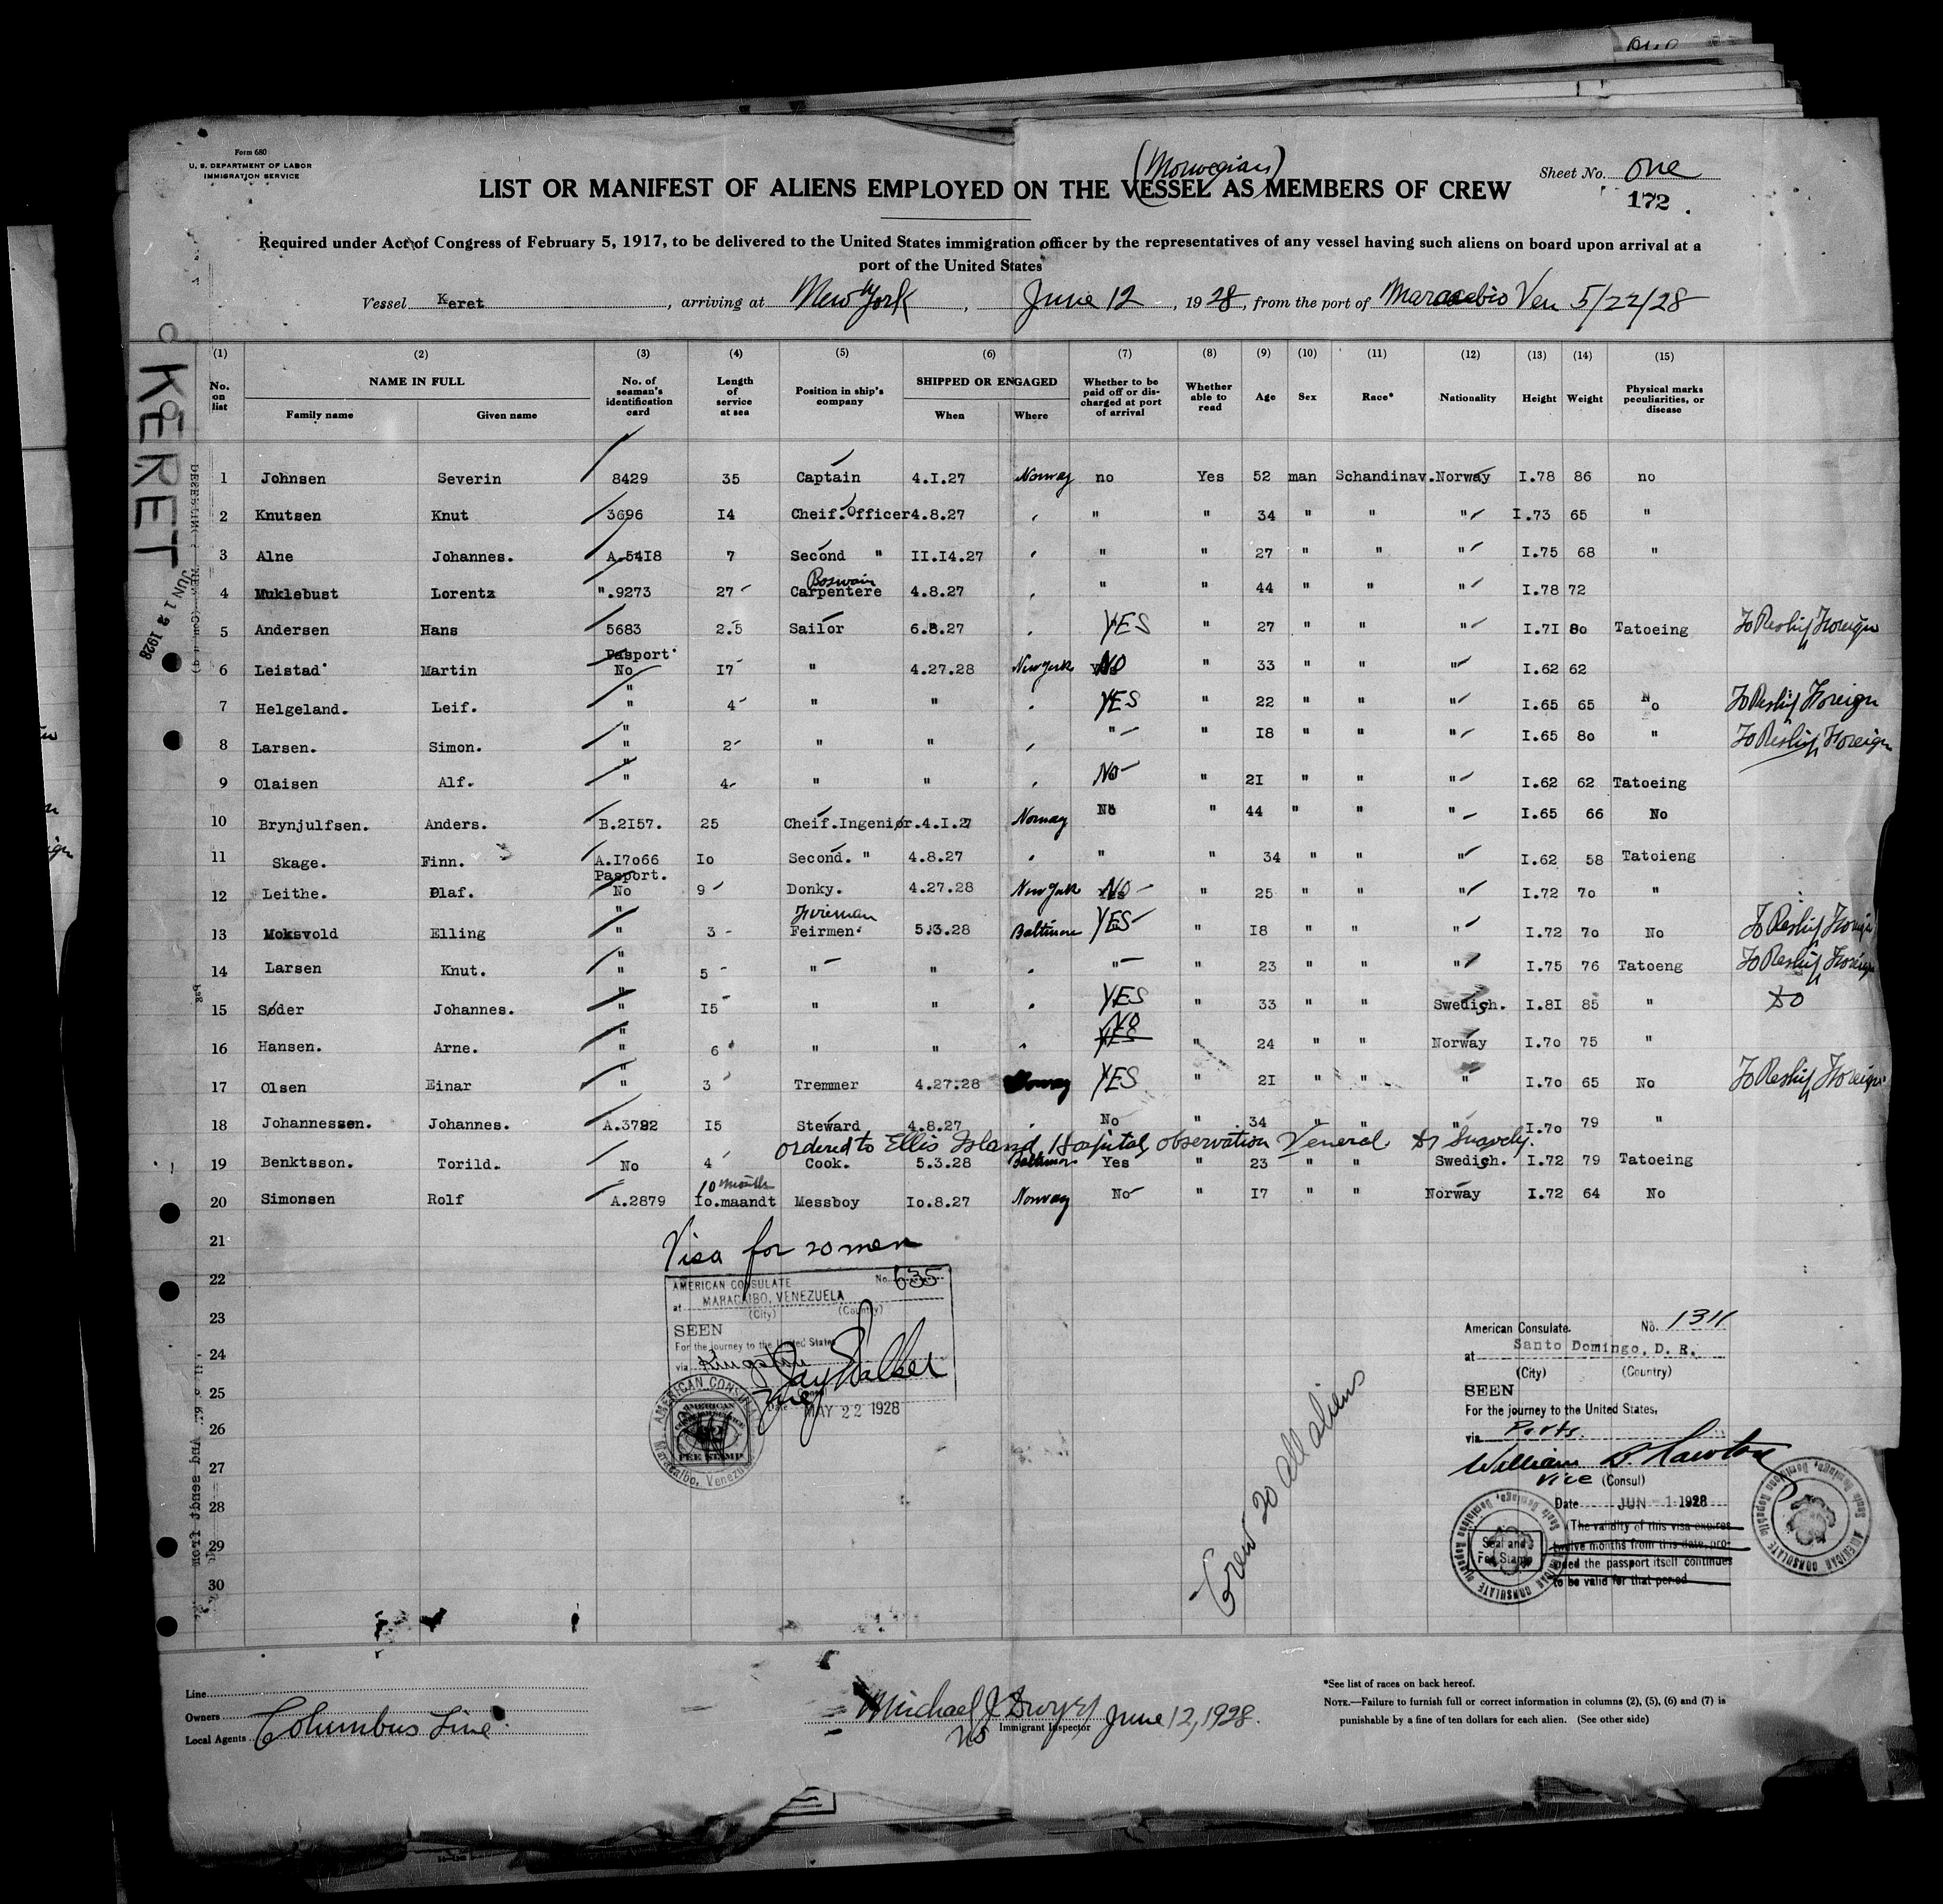 Form 680
U. S. DEPARTMENT OF LABOR
IMMIGRATION SERVICE
(Norwegian)
Sheet No. one
172
LIST OR MANIFEST OF ALIENS EMPLOYED ON THE VESSEL AS MEMBERS OF CREW
Required under Act of Congress of February 5, 1917, to be delivered to the United States immigration officer by the representatives of any vessel having such aliens on board upon arrival at a
port of the United States
Vessel Keret, arriving at New York, June 12, 1928, from the port of Maracabio Ven 5/22/28
KERET
JUN 12 1928
(1) (2) (3) (4) (5) (6) (7) (8) (9) (10) (11) (12) (13) (14) (15)
No. on list NAME IN FULL Family name Given name No. of seaman's identification card Length of service at sea Position in ship's company SHIPPED OR ENGAGED When Where Whether to be paid off or discharged at port of arrival Whether able to read Age Sex Race* Nationality Height Weight Physical marks peculiarities, or disease
1 Johnsen Severin 8429 35 Captain 4.I.27 Norway no Yes 52 man Schandinav. Norway I.78 86 no
2 Knutsen Knut 3696 I4 Cheif.Officer 4.8.27 " " 34 " " " I.73 65 "
3 Alne Johannes. A.54I8 7 Second " II.I4.27 " " 27 " " " I.75 68 "
Boswain
4 Muklebust Lorentz ".9273 27 Carpentere 4.8.27 " " 44 " " " I.78 72
5 Andersen Hans 5683 2.5 Sailor 6.8.27 YES " 27 " " " I.7I 80 Tatoeing To Reship Foreign
Pasport
6 Leistad Martin No I7 " 4.27.28 New York NO " 33 " " " I.62 62
7 Helgeland. Leif. " 4 " " YES " 22 " " " I.65 65 No To Reship Foreign
8 Larsen. Simon. " 2 " " " " I8 " " " I.65 80 " To Reship Foreign
9 Olaisen Alf. " 4 " " No " 2I " " " I.62 62 Tatoeing
10 Brynjulfsen. Anders. B.2I57. 25 Cheif.Ingeniør. 4.I.27 Norway No " 44 " " " I.65 66 No
11 Skage. Finn. A.I7o66 Io Second. " 4.8.27 " " 34 " " " I.62 58 Tatoieng
Pasport.
12 Leithe. Olaf. No 9 Donky. 4.27.28 New York NO " 25 " " " I.72 7o "
Fireman
13 Moksvold Elling " 3 Feirmen. 5.3.28 Baltimore YES " I8 " " " I.72 7o No To Reship Foreign
14 Larsen Knut. " 5 " " " " 23 " " " I.75 76 Tatoeng To Reship Foreign
15 Søder Johannes. " I5 " " YES " 33 " " Swedish. I.8I 85 " DO
16 Hansen. Arne. " 6 " " NO YES " 24 " " Norway I.7o 75 "
17 Olsen Einar " 3 Tremmer 4.27.28 Norway YES " 2I " " " I.7o 65 No To Reship Foreign
18 Johannessen. Johannes. A.3792 I5 Steward 4.8.27 No " 34 " " " I.7o 79 "
ordered to Ellis Island Hospital, observation Veneral.
19 Benktsson. Torild. No 4 Cook. 5.3.28 Baltimore Yes " 23 " " Swedish. I.72 79 Tatoeing
10 months
20 Simonsen Rolf A.2879 Io.maandt Messboy Io.8.27 Norway No " I7 " " Norway I.72 64 No
21
22
23
24
25
26
27
28
29
30
Visa for 20 men
AMERICAN CONSULATE No. 635
at MARACAIBO, VENEZUELA
(City) (Country)
SEEN
For the journey to the United States
via Kingston
Jay Walker
Vice Consul
Date MAY 22 1928
AMERICAN CONSULATE
Maracaibo, Venezuela
AMERICAN
FEE STAMP
Crew 20 all aliens
American Consulate. No. 1311
at Santo Domingo, D. R.
(City) (Country)
SEEN
For the journey to the United States,
via Ports.
William B. Lawton
Vice (Consul)
Date JUN 1 1928
(The validity of this visa expires
twelve months from this date, pro-
vided the passport itself continues
to be valid for that period
Seal and
Fee Stamp
AMERICAN CONSULATE
Santo Domingo, Dominican Republic
Line
Owners
Local Agents Columbus Line
Michael J Dwyer June 12, 1928.
Immigrant Inspector
*See list of races on back hereof.
NOTE.—Failure to furnish full or correct information in columns (2), (5), (6) and (7) is
punishable by a fine of ten dollars for each alien. (See other side)